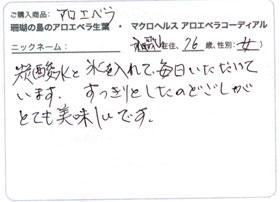 ご購入商品： アロエベラ
珊瑚の島のアロエベラ生葉 ・ マクロヘルス アロエベラコーディアル
ニックネーム： 在住、76歳、性別：女
炭酸水と氷を入れて、毎日いただいて
います。 すっきりとしたのどごしが
とても美味しいです。